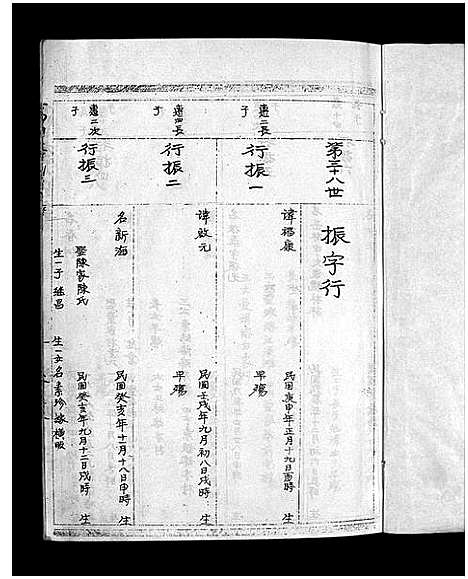 第三十八世
振字行
惠二長子
行振一
諱福康
民國庚申年正月十九日酉時 生
早殤
惠四長子
行振二
諱啟元
民國壬戌年九月初八日戌時 生
早殤
惠二次子
行振三
名新海
民國癸亥年十一月十八日申時 生
娶陳家陳氏
民國癸亥年九月十二日戌時 生
生一子 繼昌
生一女名素珍嫁橫畈